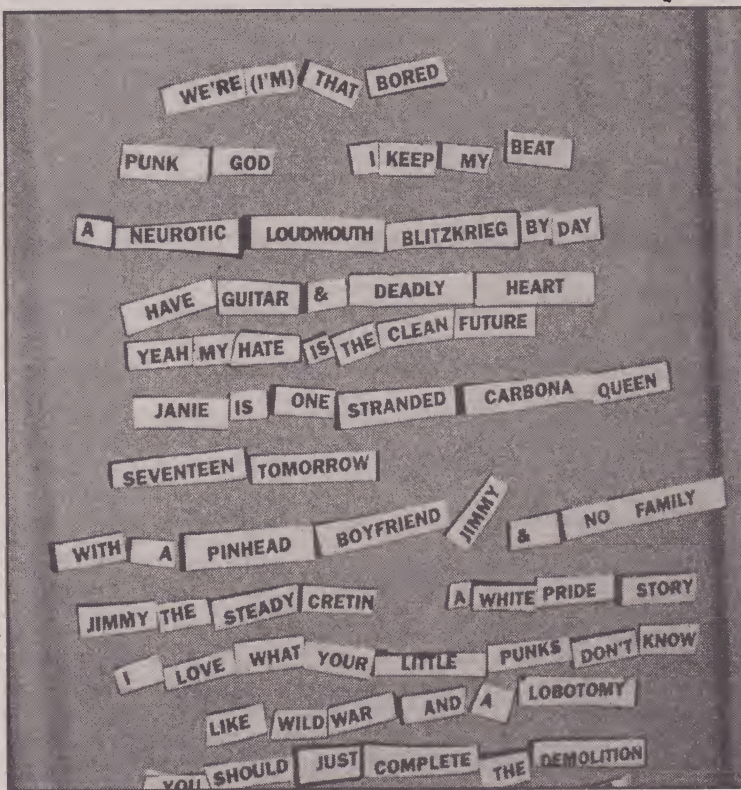 WE'RE (I'M) THAT BORED
PUNK GOD I KEEP MY BEAT
A NEUROTIC LOUDMOUTH BLITZKRIEG BY DAY
HAVE GUITAR & DEADLY HEART
YEAH MY HATE IS THE CLEAN FUTURE
JANIE IS ONE STRANDED CARBONA QUEEN
SEVENTEEN TOMORROW
WITH A PINHEAD BOYFRIEND JIMMY & NO FAMILY
JIMMY THE STEADY CRETIN A WHITE PRIDE STORY
I LOVE WHAT YOUR LITTLE PUNKS DON'T KNOW
LIKE WILD WAR AND A LOBOTOMY
YOU SHOULD JUST COMPLETE THE DEMOLITION